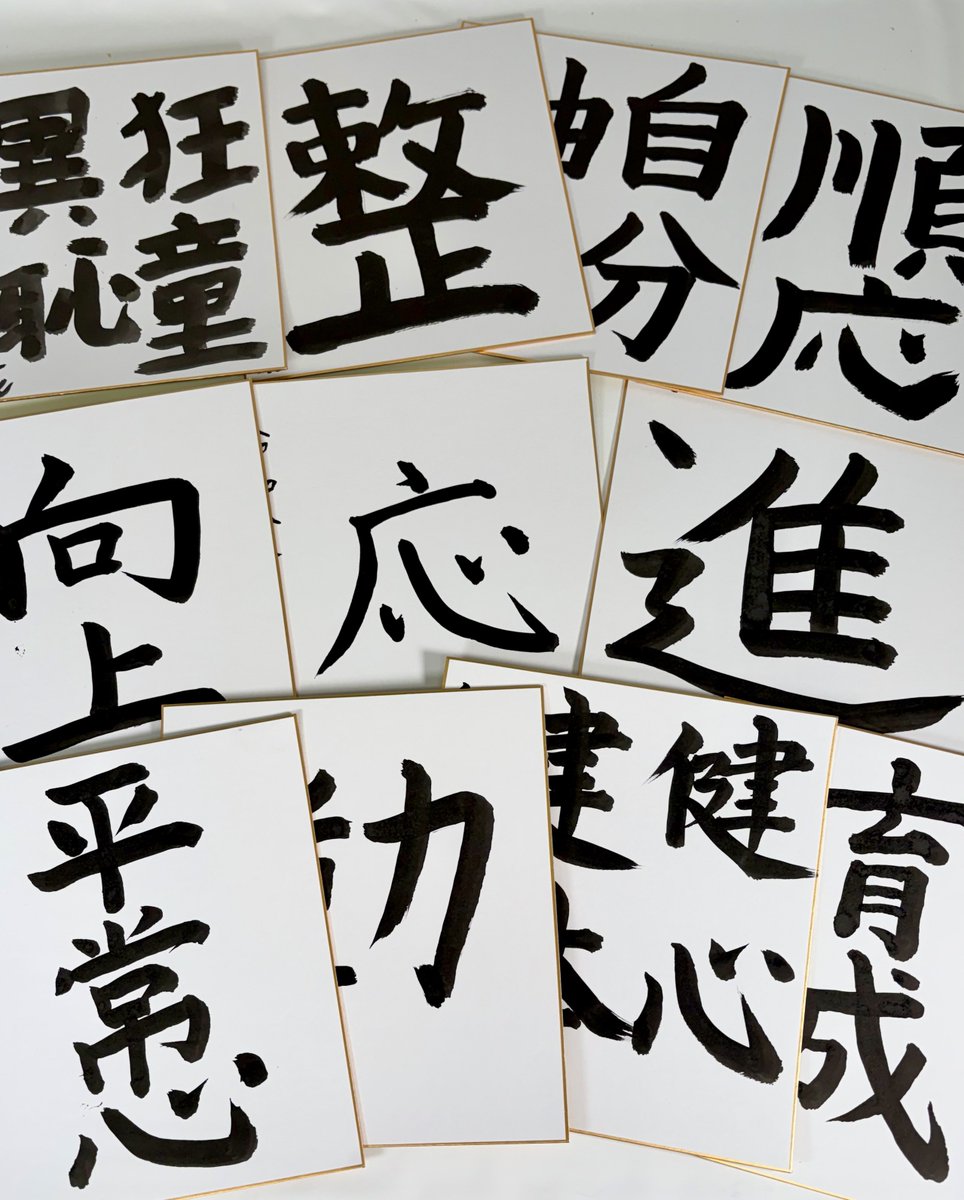 狂童
恥
整
自分
順応
向上
応
進
平常心
健心
健体
育成